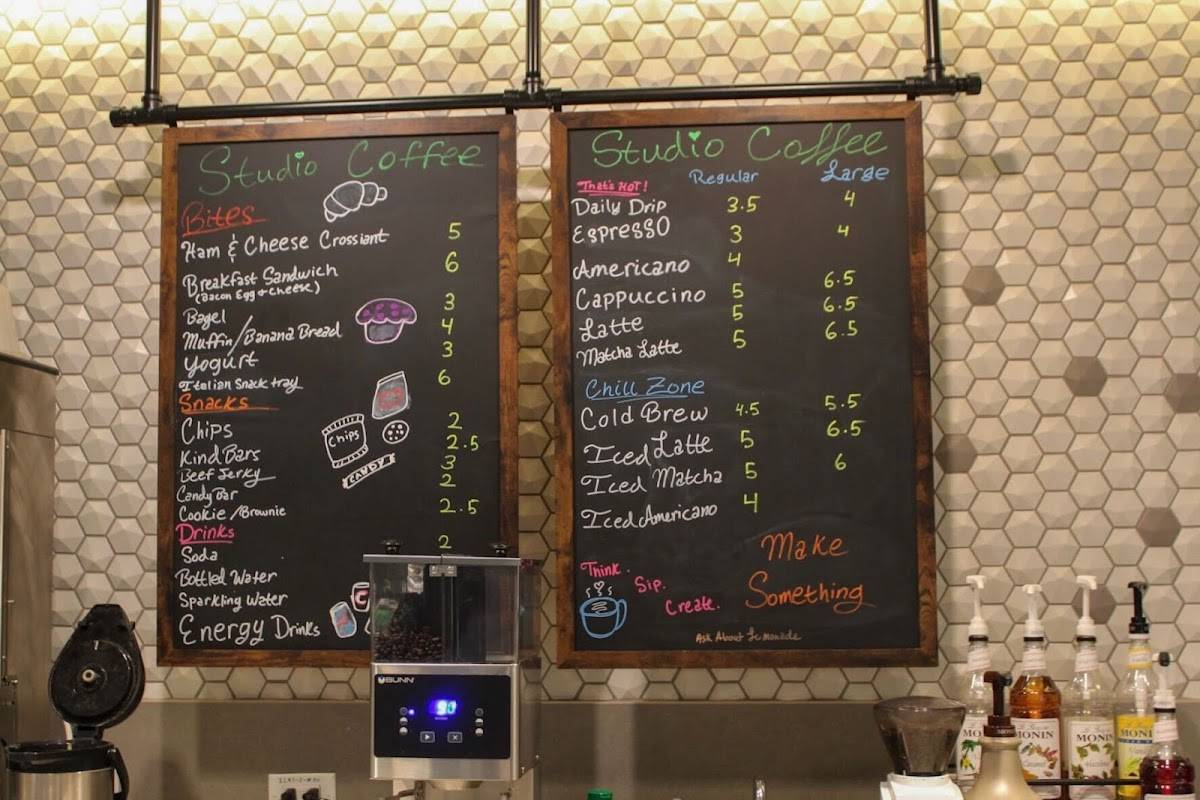 Studio Coffee
Bites
Ham & Cheese Crossiant 5
Breakfast Sandwich 6
(Bacon Egg & Cheese)
Bagel 3
Muffin/Banana Bread 4
Yogurt 3
Italian Snack tray 6
Snacks
Chips 2
Kind Bars 2.5
Beef Jerky 3
Candy Bar 2
Cookie/Brownie 2.5
Drinks
Soda 2
Bottled Water
Sparkling Water
Energy Drinks
CHIPS
CANDY
Studio Coffee
That's HOT! Regular Large
Daily Drip 3.5 4
Espresso 3 4
Americano 4
Cappuccino 5 6.5
Latte 5 6.5
Matcha Latte 5 6.5
Chill Zone
Cold Brew 4.5 5.5
Iced Latte 5 6.5
Iced Matcha 5 6
Iced Americano 4
Think.
Sip.
Create.
Make
Something
Ask About Lemonade
BUNN
MONIN
Caramel
MONIN
Hazelnut